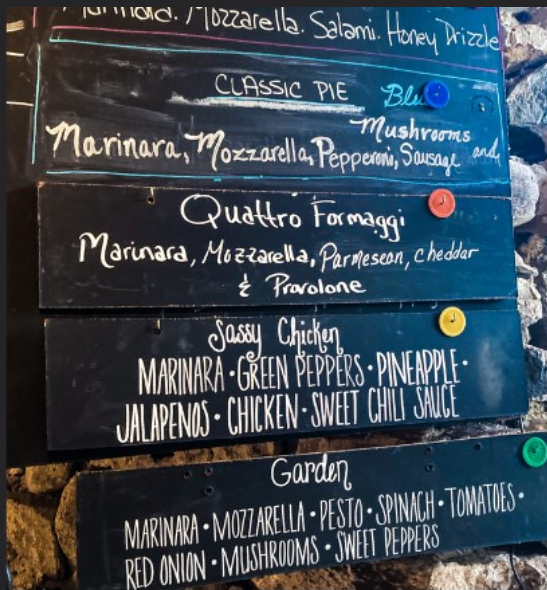 Marinara. Mozzarella. Salami. Honey Drizzle
CLASSIC PIE
Mushrooms
Marinara, Mozzarella, Pepperoni, Sausage and
Quattro Formaggi
Marinara, Mozzarella, Parmesean, cheddar
& Provolone
Sassy Chicken
MARINARA • GREEN PEPPERS • PINEAPPLE •
JALAPENOS • CHICKEN • SWEET CHILI SAUCE
Garden
MARINARA • MOZZARELLA • PESTO • SPINACH • TOMATOES •
RED ONION • MUSHROOMS • SWEET PEPPERS